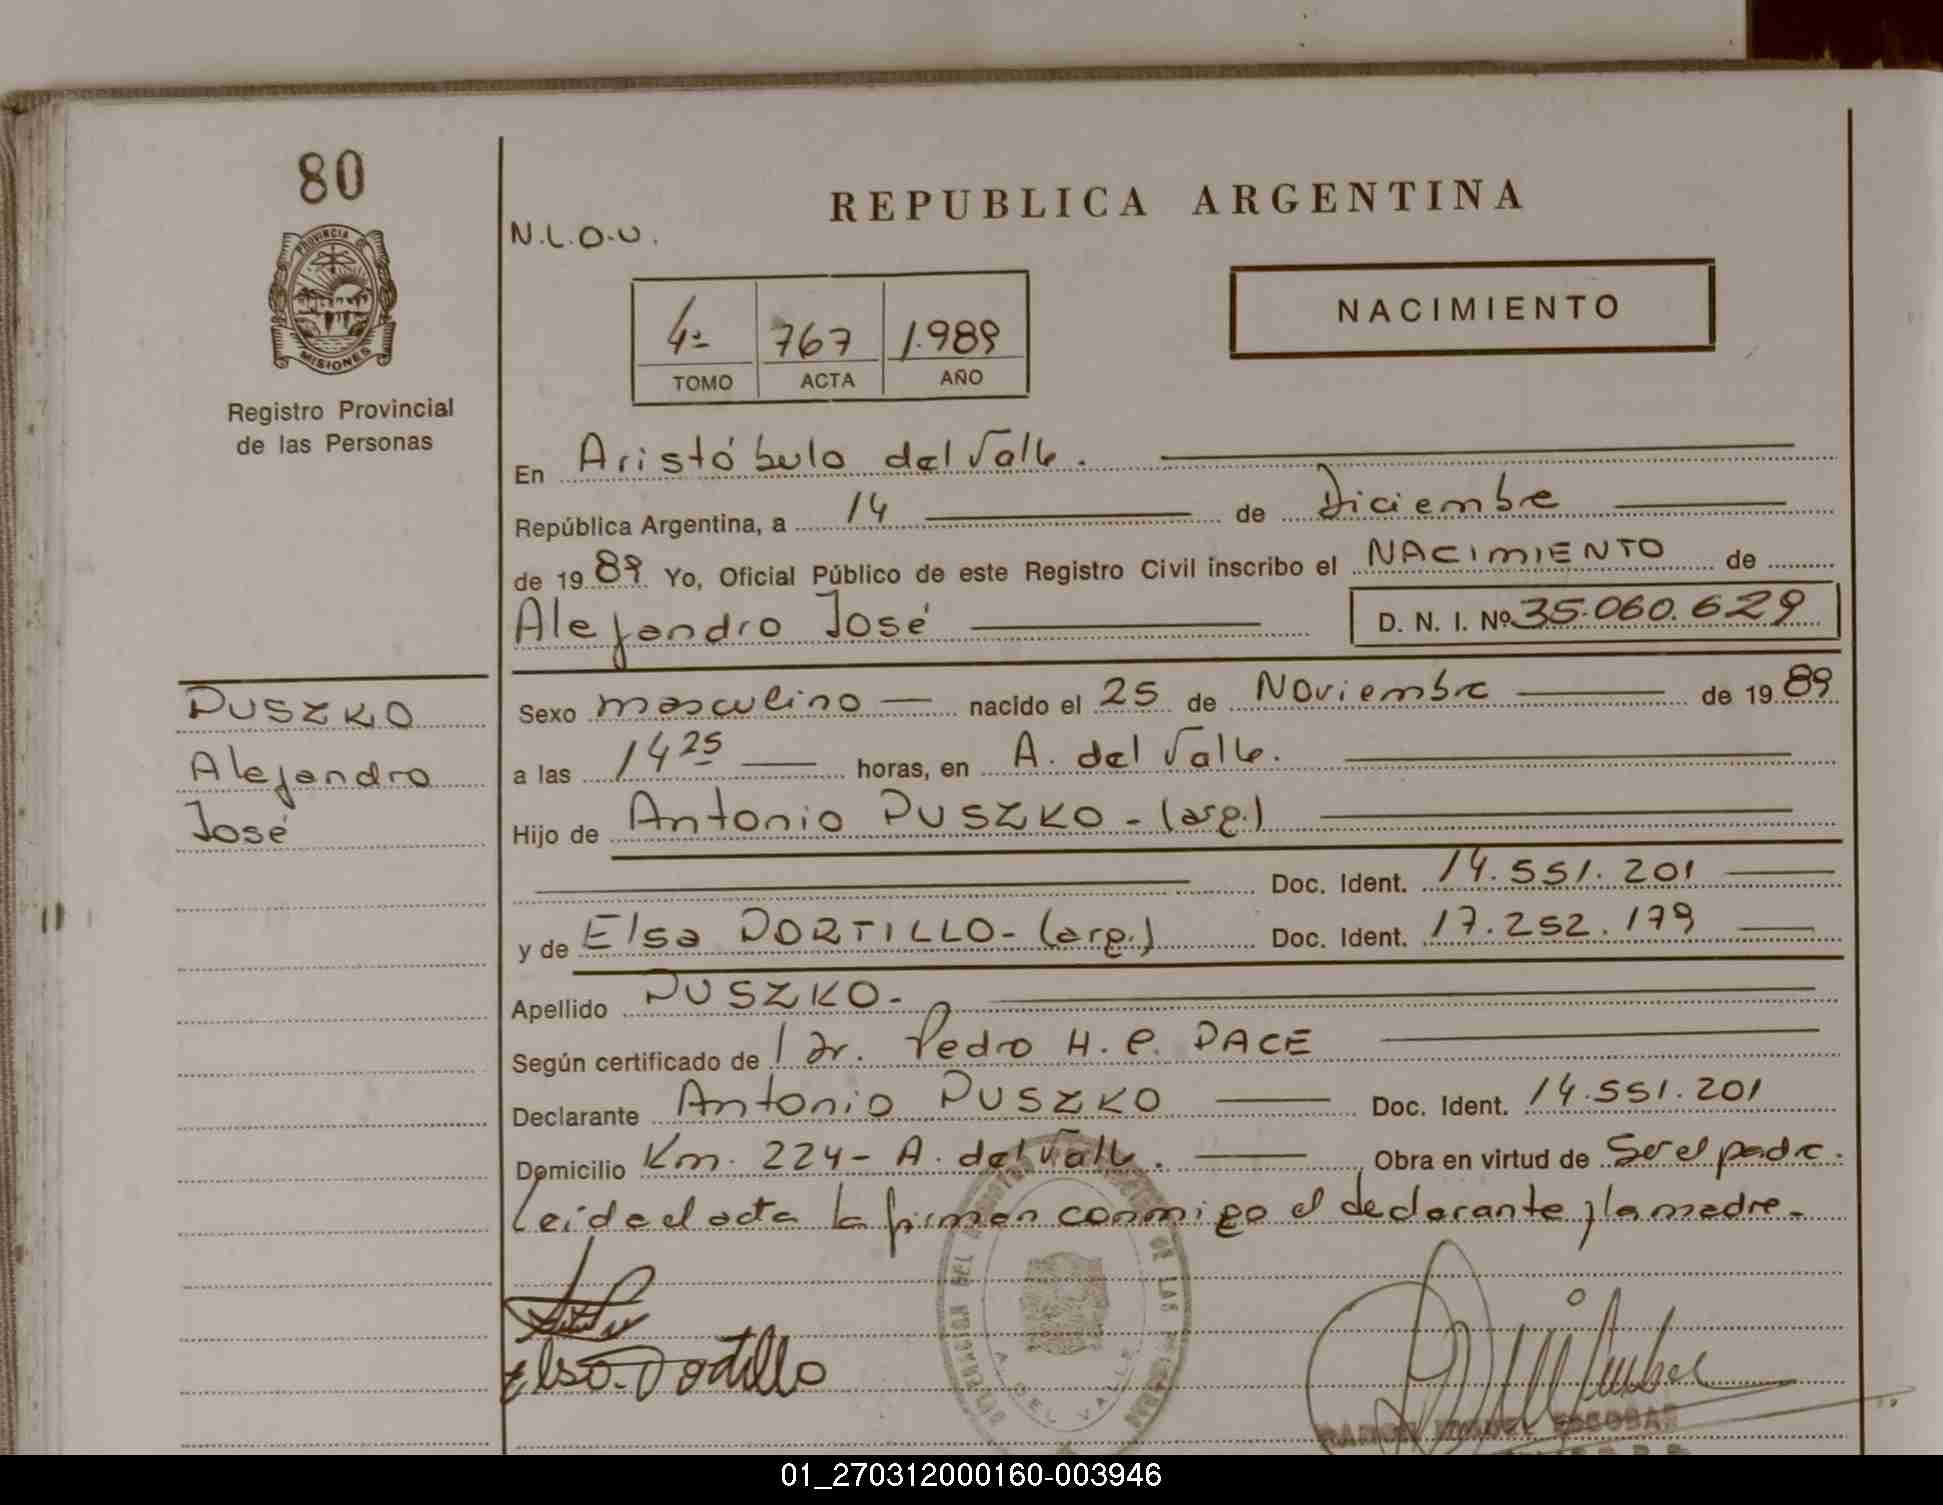 80
REPUBLICA ARGENTINA
N.L.O.U.
PROVINCIA DE
MISIONES
NACIMIENTO
4º 767 1.989
TOMO ACTA AÑO
Registro Provincial
de las Personas
En Aristóbulo del Valle.
República Argentina, a 14 de Diciembre
de 1989 Yo, Oficial Público de este Registro Civil inscribo el NACIMIENTO de
Alejandro José D. N. I. Nº 35.060.629
PUSZKO
Alejandro
José
Sexo masculino nacido el 25 de Noviembre de 1989
a las 14 25 horas, en A. del Valle.
Hijo de Antonio PUSZKO - (arg.)
Doc. Ident. 14.551.201
y de Elsa PORTILLO - (arg.) Doc. Ident. 17.252.179
Apellido PUSZKO.-
Según certificado del Dr. Pedro H. C. PACE
Declarante Antonio PUSZKO Doc. Ident. 14.551.201
Domicilio Km. 224 - A. del Valle. Obra en virtud de Ser el padre.
Leida el acta la firman conmigo el declarante y la madre.-
Elsa Portillo
DELEGACION DEL REGISTRO DE LAS
A. DEL VALLE
RAMON MIGUEL ESCOBAR
01_270312000160-003946